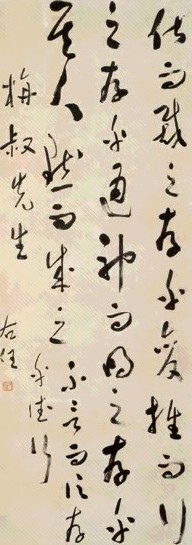 化而裁之存乎變推而行
之存乎通神而明之存乎
其人默而成之不言而信存
乎德行
梅叔先生
右任